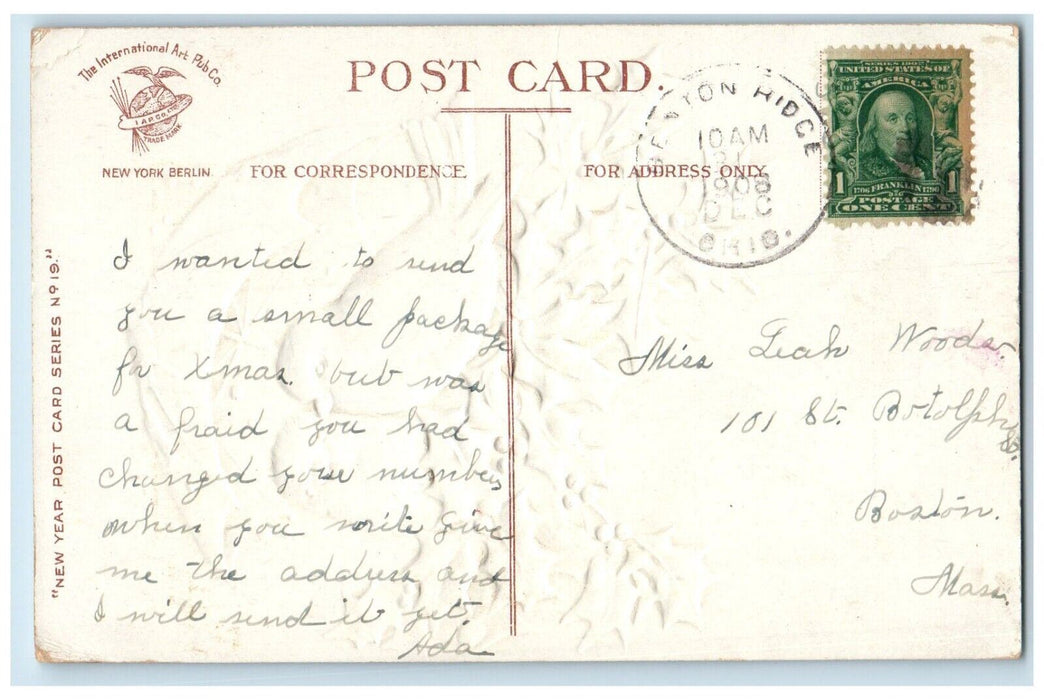 The International Art Pub Co.
I.A.P.CO.
TRADE MARK
NEW YORK BERLIN.
POST CARD.
FOR CORRESPONDENCE
FOR ADDRESS ONLY.
"NEW YEAR POST CARD SERIES Nº 19."
BENTON RIDGE
10 AM
31
1908
DEC
OHIO.
SERIES 1902
UNITED STATES OF
AMERICA
1 1706 FRANKLIN 1790 1
POSTAGE
ONE CENT
I wanted to send
you a small package
for Xmas. but was
a fraid you had
changed your number
when you write give
me the address and
I will send it yet.
Ada
Miss Leah Woods.
101 St. Botolph
St.
Boston.
Mass.